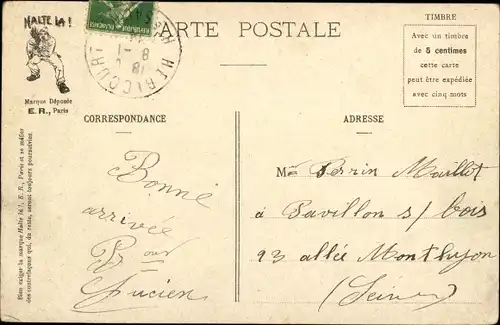 HALTE LÀ !
Marque Déposée
E. R., Paris
Bien exiger la marque Halte là !, E. R., Paris et se méfier
des contrefaçons qui, du reste, seront toujours poursuivies.
CARTE POSTALE
HERICOURT
8 - 1
TIMBRE
Avec un timbre
de 5 centimes
cette carte
peut être expédiée
avec cinq mots
CORRESPONDANCE
ADRESSE
Bonne
arrivée
Lucien
Mr Perrin Maillot
à Pavillon s/ bois
93 allée Monthyon
(Seine)